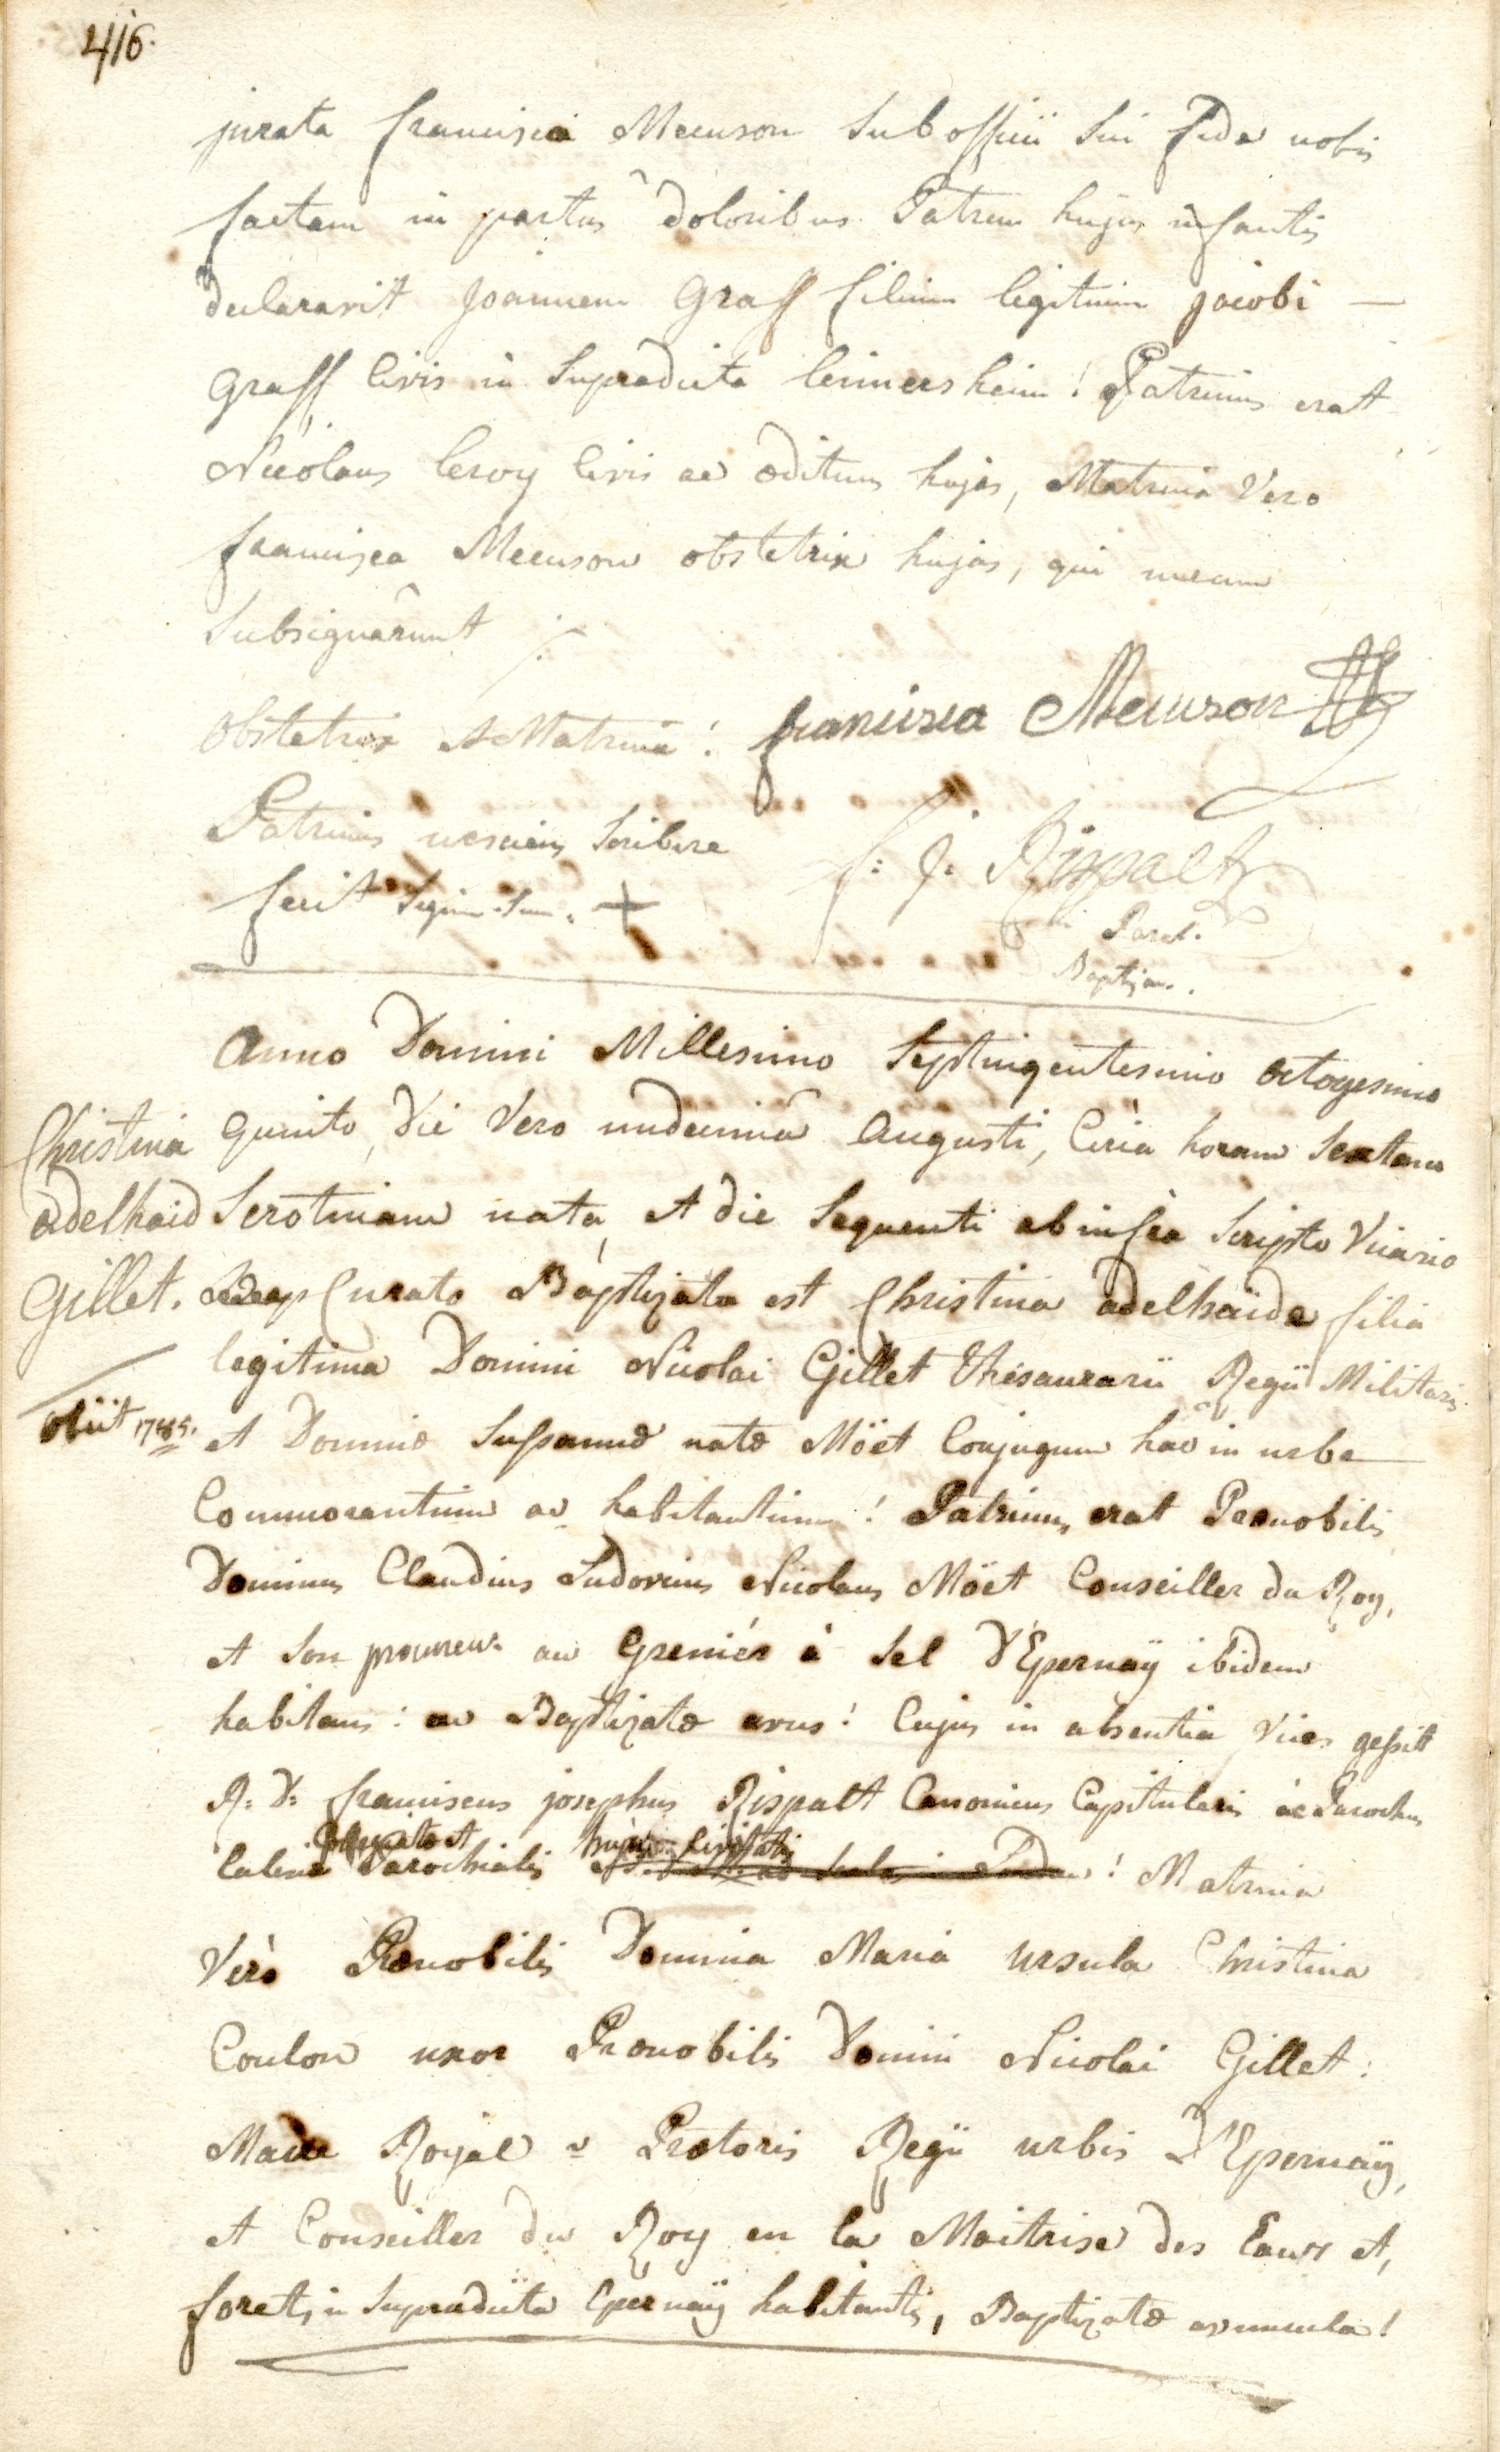 416.
jurata francisca Meeuson sub officii sui fide nobis
factam in partus doloribus Patrem hujus infantis
declaravit joannem graff filium legitimum jacobi —
graff civis in supradicta leimersheim! Patrinus erat
Nicolaus leroy civis ac ædituus hujas, Matrina vero
francisca Meeuson obstetrix hujas, qui mecum
subsignârunt ./.
obstetrix et Matrina: francisca Meeuson
Patrinus nesciens scribere
fecit signum suum. +
f: j: Rispalt
Paroch.
Baptizans.
anno Domini Millesimo septingentesimo octogesimo
quinto, Die vero undecimâ augusti, circa horam sextam
Christina
adelhaid
Gillet.
serotinam nata, et die sequenti ab infra scripto vicario
Curato Baptizata est Christina adelhaide filia
legitima Domini Nicolai Gillet Thesaurarii Regii Militaris
obiit 1785.
et Dominæ Susannæ natæ Möet Conjugum hac in urbe
Commorantium ac habitantium! Patrinus erat Prænobilis
Dominus Claudius Ludovicus Nicolaus Möet Conseiller du Roy,
et son procureur au Greniér à sel D'Epernaÿ ibidem
habitans: ac Baptizatæ avus! Cujus in absentia vices gessit
R: D: franciscus josephus Rispalt Canonicus Capitularis ac Parochus
Collegiatæ et hujus Civitatis
Parochialis ! Matrina
Verò Prænobilis Domina Maria ursula Christina
Coulon uxor Prænobilis Domini Nicolai Gillet:
Maire Royal v Prætoris Regii urbis D'Epernaÿ,
et Conseiller du Roy en la Maitrise des Eaux et,
forets in supradicta Epernaÿ habitantis, Baptizatæ avuncula!